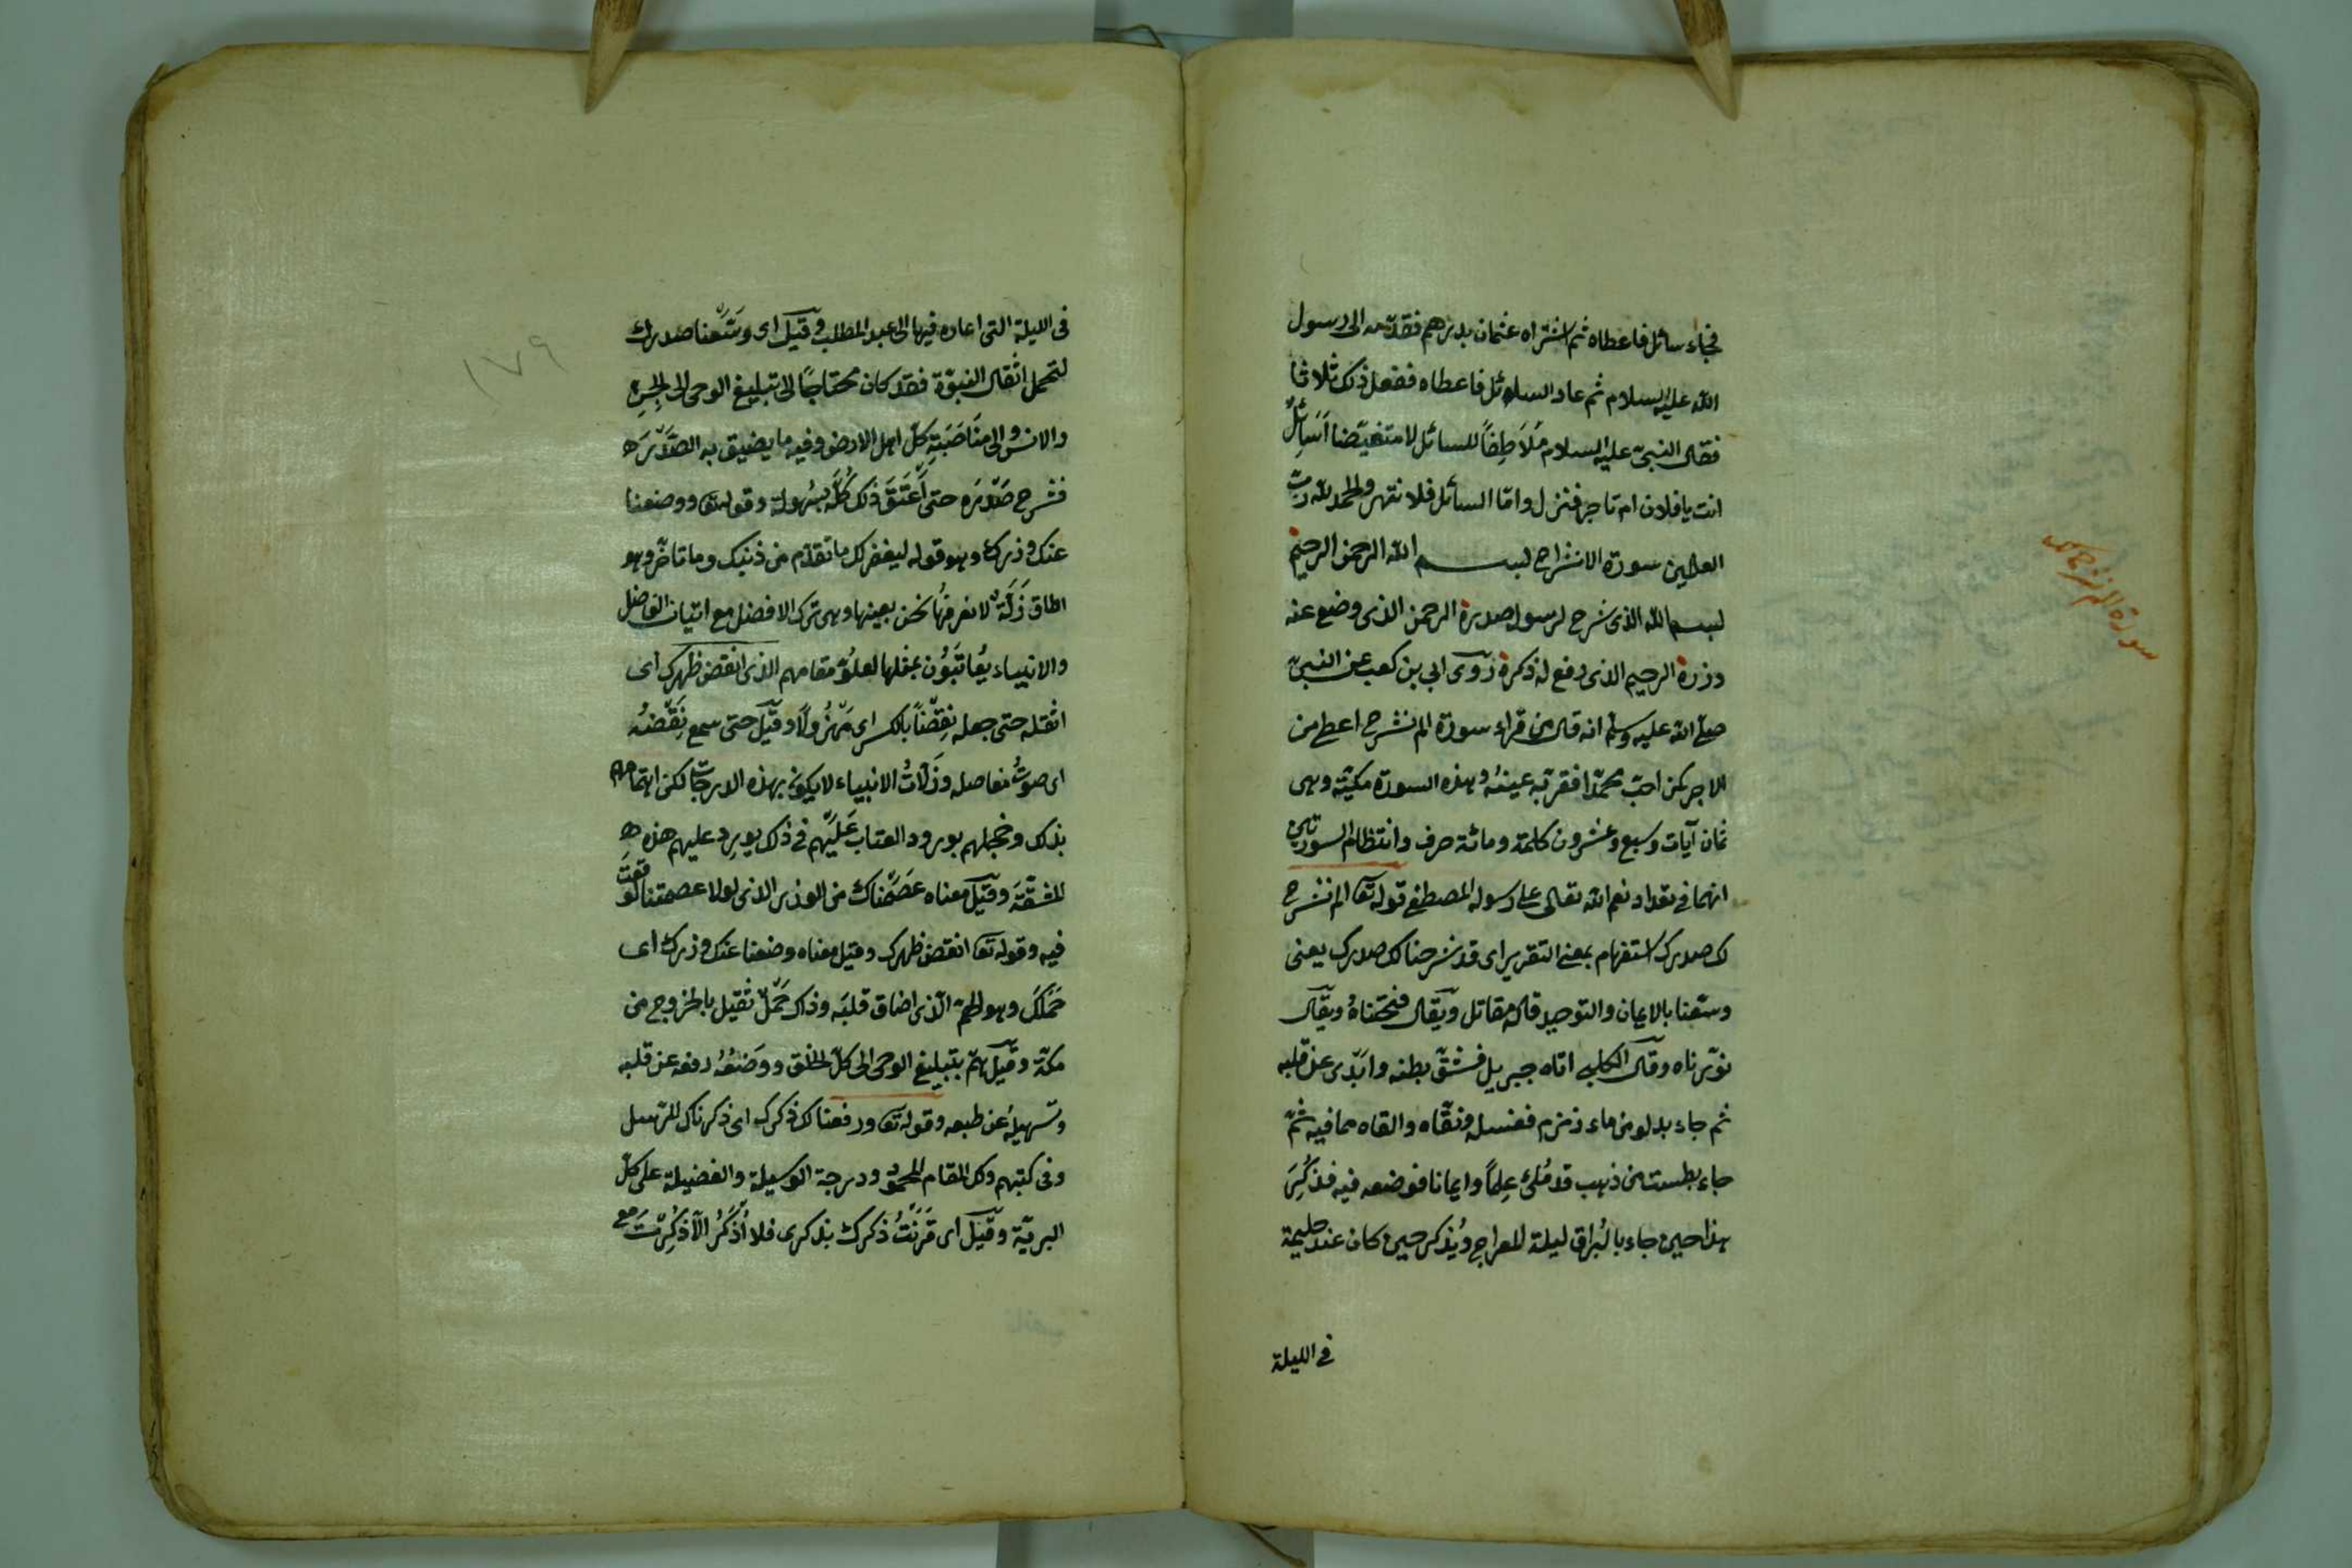 فجاء سائل فاعطاه ثم اشتراه عثمان بدرهم فقدمه الى رسول
الله عليه السلام ثم عاد السائل فاعطاه ففعل ذلك ثلاثا
فقال النبىّ عليه السلام مُلَاطِفاً للسائل لا متغيّضا اَسَائِلٌ
انت يا فلان ام تاجر فنزل وامّا السائل فلا تنهر والحمد لله ربّ
العالمين سورة الانشراح بسم الله الرحمن الرحيم
بسم الله الذى شرح لرسوله صدره الرحمن الذى وضع عنه
وزره الرحيم الذى رفع له ذكره رَوَى ابي بن كعب عن النبىّ
صلى الله عليه وسلم انه قال من قراء سورة الم نشرح اعطى من
الاجر كمن احبّ محمّدا فقرّ به عينه وهذه السورة مكيّة وهى
ثمان آيات وسبع وعشرون كلمة ومائة حرف وانتظام السورتين
انهما فى تعداد نعم الله تعالى على رسوله المصطفى قوله تعا الم نشرح
لك صدرك استفهام بمعنى التقرير اى قد شرحنا لك صدرك يعنى
وسّعنا بالايمان والتوحيد قاله مقاتل ويقال فتحناهُ ويقال
نوّرناه وقال الكلبى اتاه جبريل فشقّ بطنه وابدى عن قلبه
ثم جاء بدلو من ماء زمزم فغسله ونقّاه والقاه مما فيه ثمّ
جاء بطست من ذهب قد مُلئ عِلماً وايمانا فوضعه فيه فذُكِرَ
هذا حين جاء بالبُراق ليلة المعراج ويُذكر حين كان عند حليمة
فى الليلة
سورة الم نشرح
فى الليلة التى اعاده فيها الى عبد المطلب وقيل اى وسّعنا صدرك
لتحمل اثقال النبوّة فقد كان محتاجًا الى تبليغ الوحى الى الجنّ
والانس والى مناصَبَةِ كلّ اهل الارض وفيه ما يضيق به الصَّدْرَ
فشرح صَدْرَه حتى ذلك كُلَّه بسُهولة وقوله تعا ووضعنا
عنك وزرك وهو قوله ليغفر لك ما تقدّم من ذنبك وما تأخّر وهو
زَلَّة لا نعرفها نحن بعينها وهى ترك الافضل مع اتيان الفاضل
والانبياء يُعاتَبُون بمثلها لعلوّ مقامهم الذى انقض ظهرك اى
اثقله حتى جعله نِقْضًا بالكسر اى مَهْزُولًا وقيل حتى سمع نَقْضُه
اى صوتُ مفاصله وزَلّاتُ الانبياء لا يكون بهذه الدرجات لكن اهتمامهم
بذلك وخجلهم بورود العتاب عَلَيْهم فى ذلك يورد عليهم هذه
المشقّةَ وقيل معناه عَصَمْناك من الوزر الذى لولا عصمتنا لوقعتَ
فيه وقوله تعا انقض ظهرك وقيل معناه وضعنا عنك وزرك اى
حَمْلَكَ وهو الهمّ الّذى اضاق قلبَه وذاك حَمْلٌ ثقيل بالخروج من
مكّة وقيل همّ بتبليغ الوحى الى كلّ الخلق ووَضْعُهُ رفعه عن قلبه
وتسهيلهُ عن طبعه وقوله تعا ورفعنا لك ذكرك اى ذكرناك للرّسل
وفى كتبهم ولك المقام المحمود ودرجة الوسيلة والفضيلة على كلّ
البريّة وقيل اى قَرَنْتُ ذكرك بذكرى فلا اُذْكَرُ الّا ذُكِرْتَ مع
١٧٩